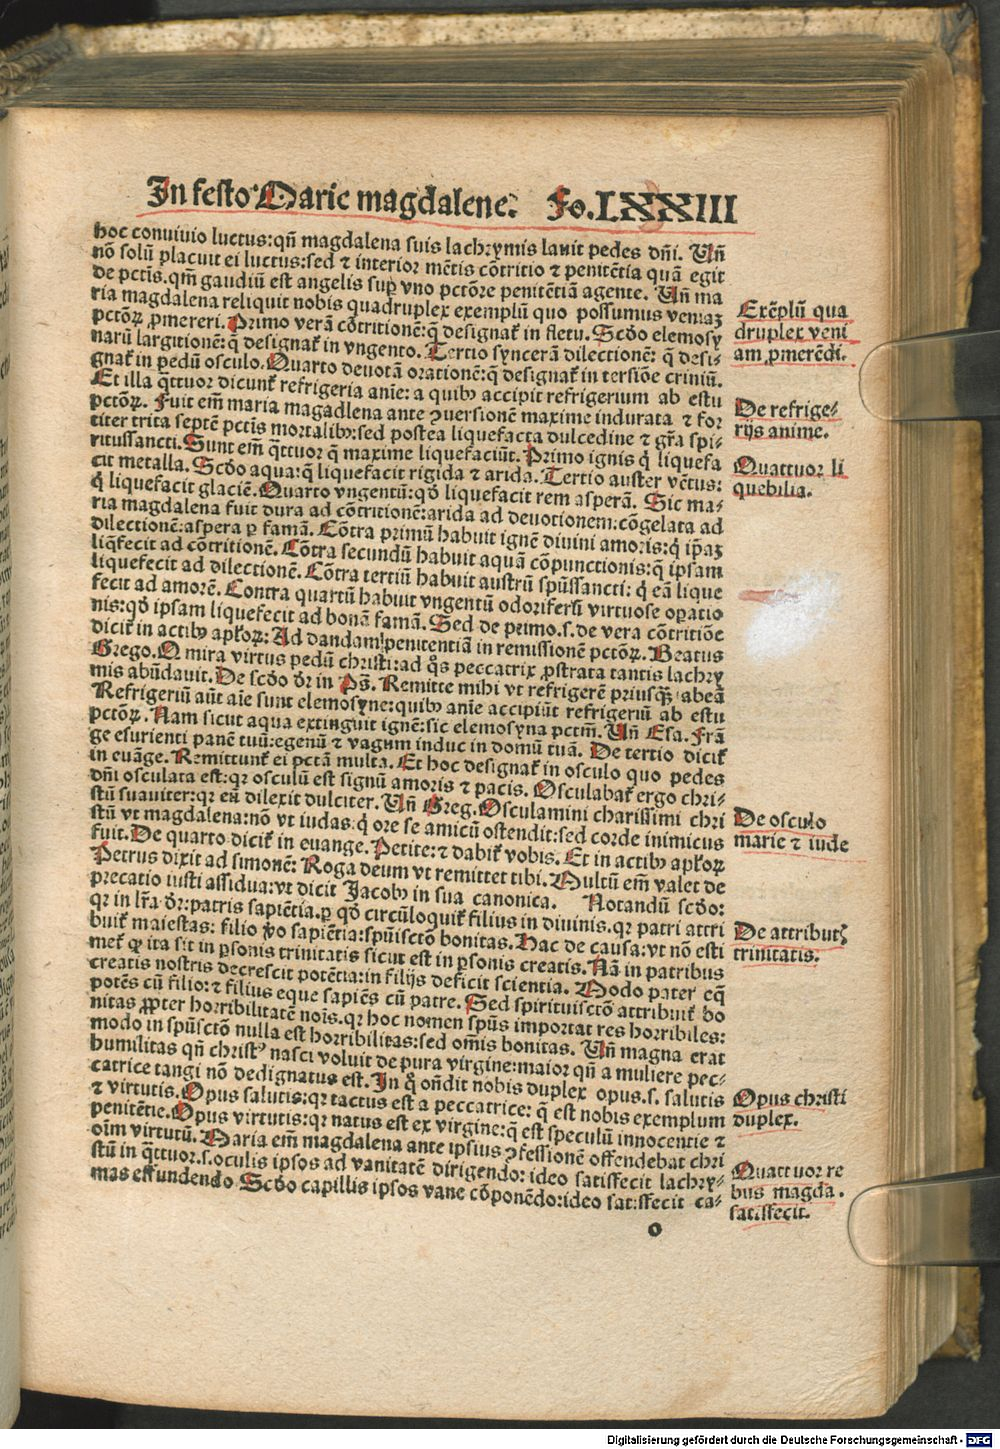 In festo Marie magdalene. Fo. LXXIII
hoc conuiuio luctus: qñ magdalena suis lachrymis lauit pedes dñi. Uñ
nõ solũ placuit ei luctus: sed ⁊ interior mẽtis cõtritio ⁊ penitẽtia quã egit
de pctĩs. qm̃ gaudiũ est angelis sup̱ vno pctõre penitẽtiã agente. Uñ ma
ria magdalena reliquit nobis quadruplex exemplũ quo possumus veniaꝫ
pctõꝝ ꝓmereri. Primo verã cõtritionẽ: q̃ designat̃ in fletu. Scďo elemosy
narũ largitionẽ: q̃ designat̃ in vngento. Tertio syncerã dilectionẽ: q̃ desi-
gnat̃ in pedũ osculo. Quarto deuotã orationẽ: q̃ designat̃ in tersiõe criniũ.
Et illa q̃ttuor dicunt̃ refrigeria anĩe: a quibꝰ accipit refrigerium ab estu
pctõꝝ. Fuit em̃ maria magadlena ante ꝯuersionẽ maxime indurata ⁊ for
titer trita septẽ pctĩs mortalibꝰ: sed postea liquefacta dulcedine ⁊ gr̃a spi-
ritussancti. Sunt em̃ q̃ttuor q̃ maxime liquefaciũt. Primo ignis q̇ liquefa
cit metalla. Scďo aqua: q̃ liquefacit rigida ⁊ arida. Tertio auster vẽtus:
q̇ liquefacit glaciẽ. Quarto vngentũ: qď liquefacit rem asperã. Sic ma-
ria magdalena fuit dura ad cõtritionẽ: arida ad deuotionem: cõgelata ad
dilectionẽ: aspera ꝑ famã. Cõtra primũ habuit ignẽ diuini amoris: q̇ ip̃aꝫ
liq̃fecit ad cõtritionẽ. Cõtra secundũ habuit aquã cõpunctionis: q̃ ipsam
liquefecit ad dilectionẽ. Cõtra tertiũ habuit austrũ spũssancti: q̇ eã lique
fecit ad amorẽ. Contra quartũ habuit vngentũ odorifersi virtuose oꝑatio
nis: qď ipsam liquefecit ad bonã famã. Sed de primo. s. de vera cõtritiõe
dicit̃ in actibꝰ apl̃oꝝ: Ad dandam penitentiã in remissionẽ pctõꝝ. Beatus
Grego. O mira virtus pedũ christi: ad q̊s peccatrix ꝓstrata tantis lachry
mis abũdauit. De scďo dr̃ in Ps̃. Remitte mihi vt refrigerẽ priusq̃ꝫ abeã
Refrigeriũ aũt aĩe sunt elemosyne: quibꝰ anĩe accipiũt refrigeriũ ab estu
pctõꝝ. Nam sicut aqua extinguit ignẽ: sic elemosyna pctm̃. Uñ Esa. Frã
ge esurienti panẽ tuũ: egenũ ⁊ vagum induc in domũ tuã. De tertio dicit̃
in euãge. Remittunt̃ ei pctã multa. Et hoc designat̃ in osculo quo pedes
dñi osculata est: qr osculũ est signũ amoris ⁊ pacis. Osculabat̃ ergo chri-
stũ suauiter: qr eũ dilexit dulciter. Uñ Greg. Osculamini charissimi chri
stũ vt magdalena: nõ vt iudas. q̇ ore se amicũ ostendit: sed corde inimicus
fuit. De quarto dicit̃ in euange. Petite: ⁊ dabit̃ vobis. Et in actibꝰ apl̃oꝝ
Petrus dixit ad simonẽ: Roga deum vt remittet tibi. Multũ em̃ valet de
precatio iusti assidua: vt dicit Jacobꝰ in sua canonica. Notandũ scďo:
qr in lr̃a dr̃: patris sapiẽtia. ꝑ qď circũloquit̃ filius in diuinis. qr patri attri
buit̃ maiestas: filio ꝟo sapiẽtia: spũisctõ bonitas. Hac de causa: vt nõ esti
met̃ ꝙ ita sit in ꝑsonis trinitatis sicut est in ꝑsonis creatis. Nã in patribus
creatis nostris decrescit potẽtia: in filijs deficit scientia. Modo pater eq̃
potẽs cũ filio: ⁊ filius eque sapiẽs cũ patre. Sed spirituisctõ attribuit̃ bo
nitas ꝓpter horribilitatẽ noĩs. qr hoc nomen spũs importat res horribiles:
modo in spũsctõ nulla est horribilitas: sed om̃is bonitas. Uñ magna erat
humilitas qñ christꝰ nasci voluit de pura virgine: maior qñ a muliere pec-
catrice tangi nõ dedignatus est. In q̊ oñdit nobis duplex opus. s. salutis
⁊ virtutis. Opus salutis: qr tactus est a peccatrice: q̃ est nobis exemplum
penitẽtie. Opus virtutis: qr natus est ex virgine: q̃ est speculũ innocentie ⁊
oĩm virtutũ. Maria em̃ magdalena ante ipsius ꝯfessionẽ offendebat chri
stũ in q̃ttuor. s. oculis ipsos ad vanitatẽ dirigendo: ideo satisfecit lachry-
mas effundendo. Scďo capillis ipsos vane cõponẽdo: ideo satisfecit ca-
o
Exẽplũ qua
druplex veni
am ꝓmerẽdi.
De refrige-
rijs anime.
Quattuor li
quebilia.
De osculo
marie ⁊ iude
De attributꝭ
trinitatis.
Opus christi
duplex.
Quattuor re
bus magda.
satisfecit.
Digitalisierung gefördert durch die Deutsche Forschungsgemeinschaft - DFG